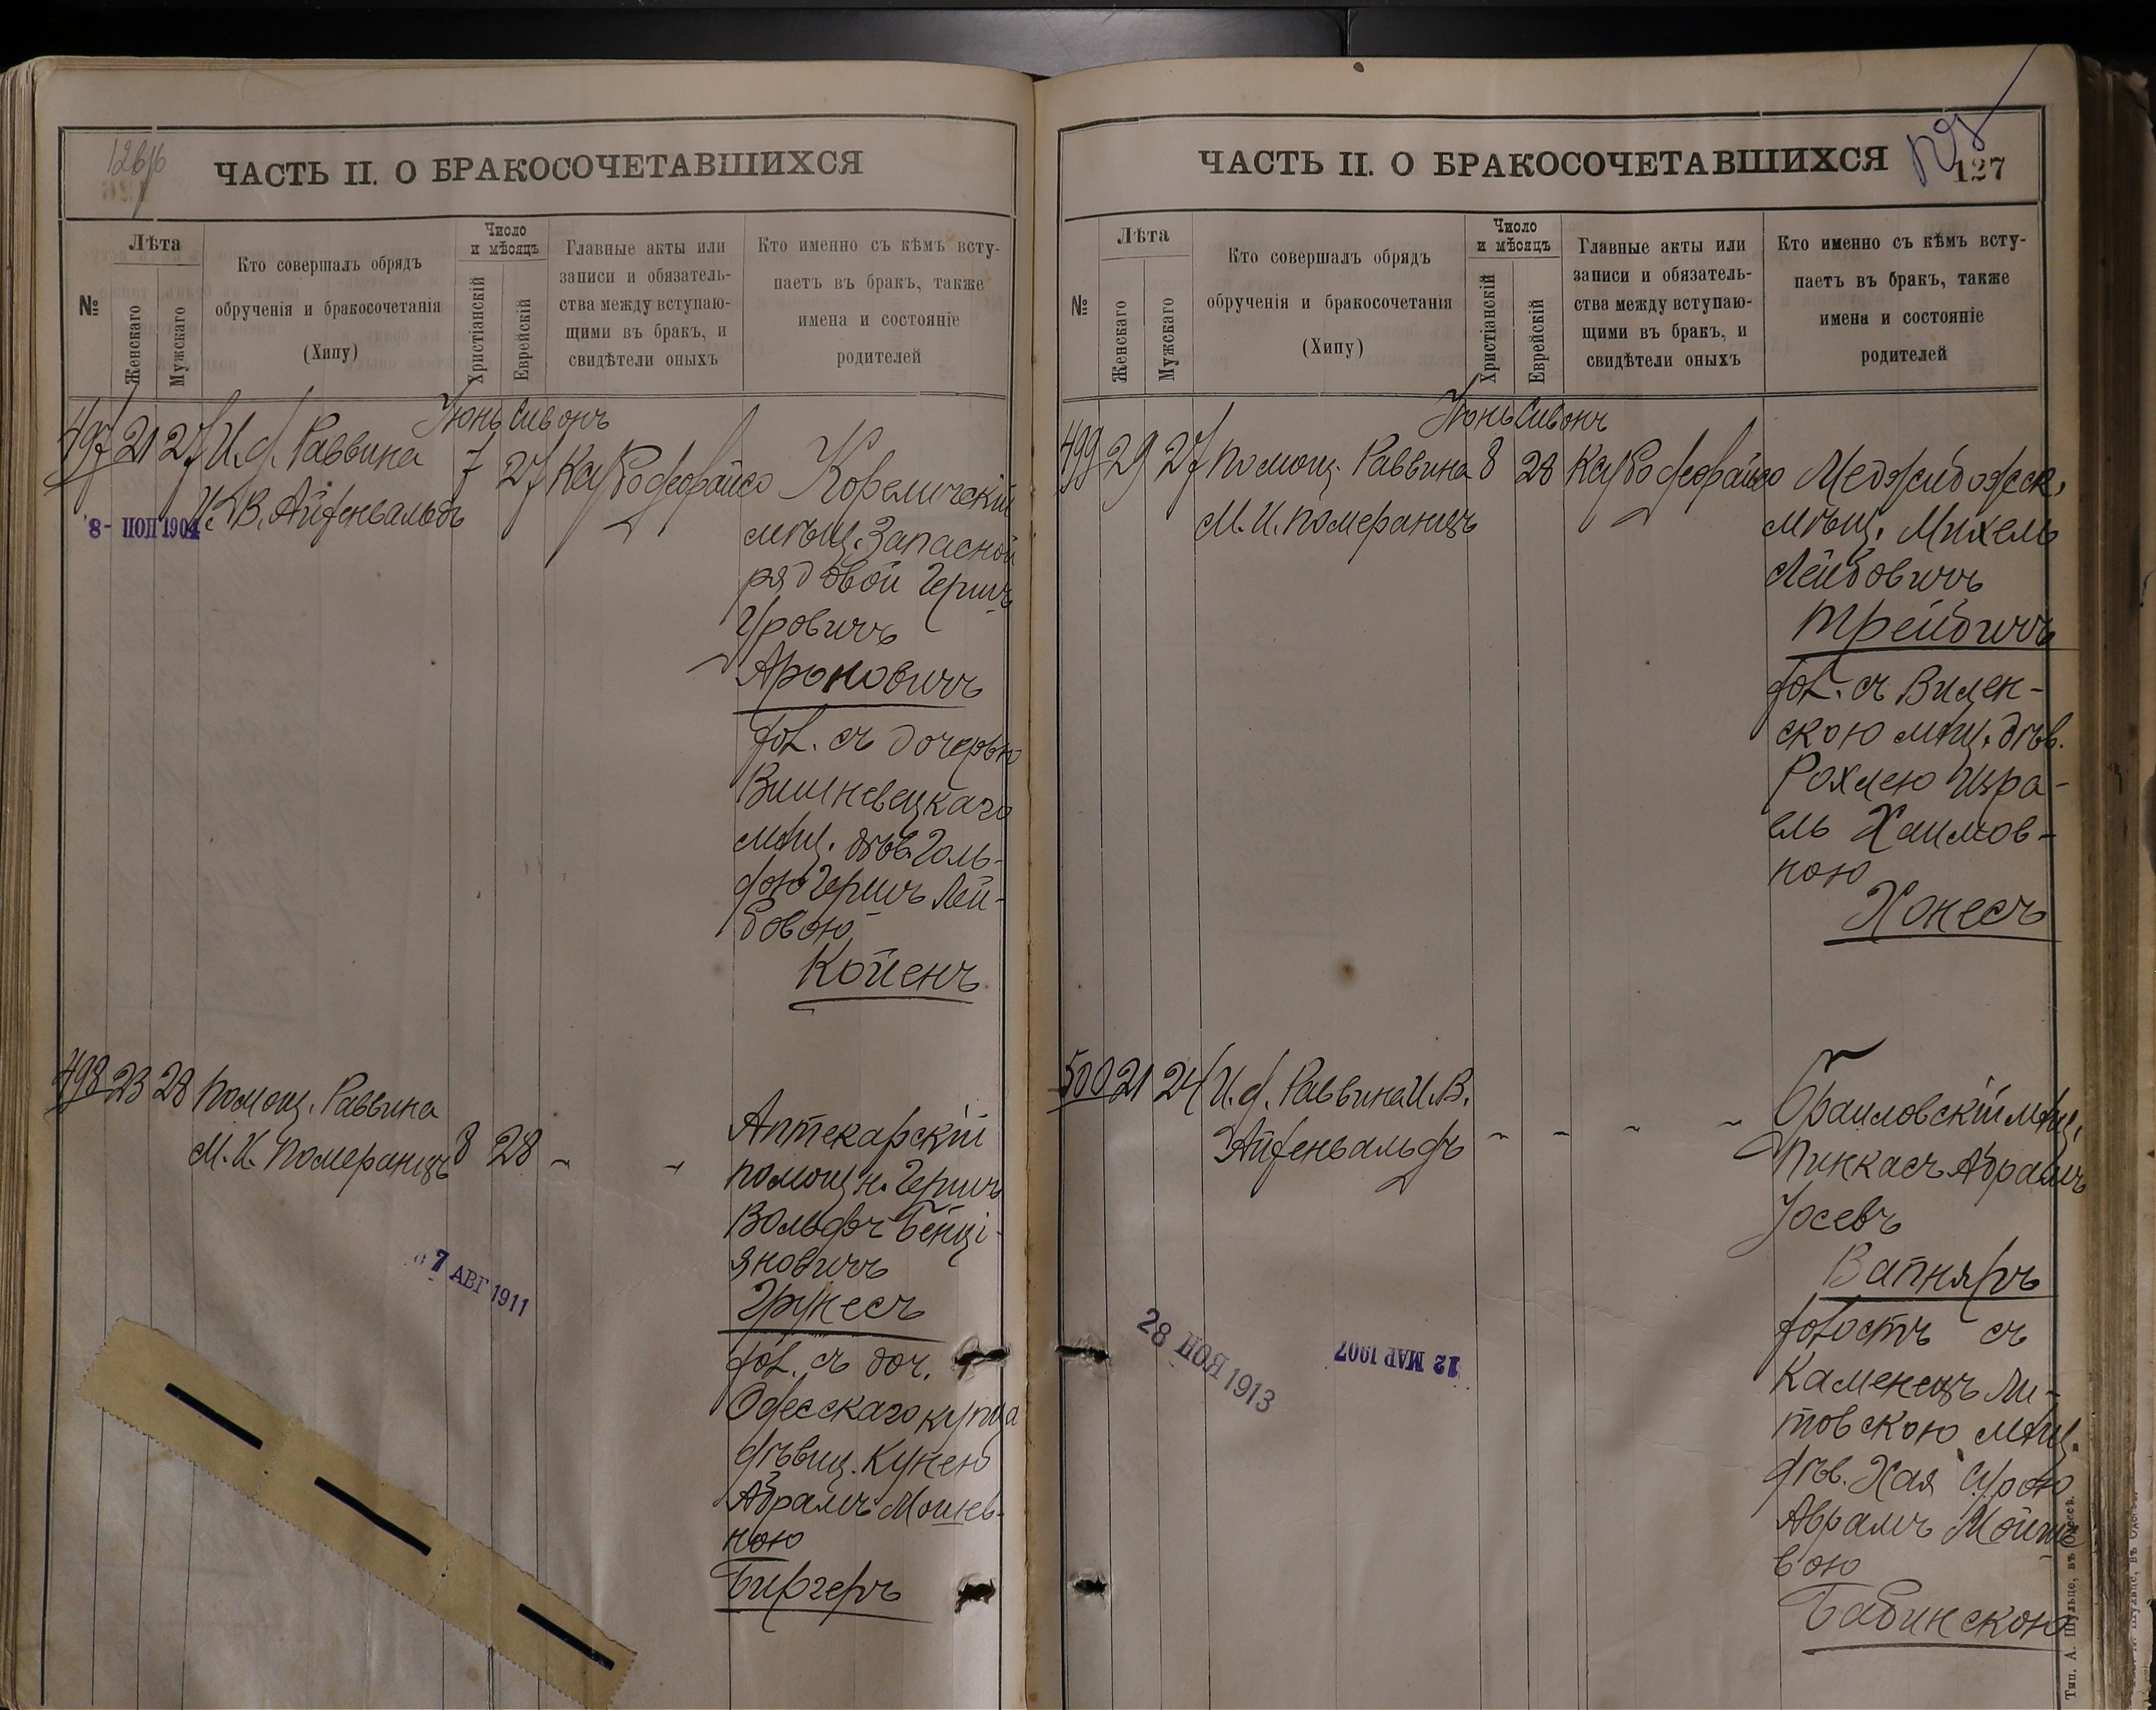 126/б
ЧАСТЬ II. О БРАКОСОЧЕТАВШИХСЯ
№
Лѣта
Женскаго
Мужскаго
Кто совершалъ обрядъ
обрученія и бракосочетанія
(Хипу)
Число
и мѣсяцъ
Христіанскій
Еврейскій
Главные акты или
записи и обязатель-
ства между вступаю-
щими въ бракъ, и
свидѣтели оныхъ
Кто именно съ кѣмъ всту-
паетъ въ брак, также
имена и состояніе
родителей
Іюнь Сивонъ
497 21 27 И.д. Раввина 7 27
И. В. Айзенвальдъ
8 - ІЮН 1904
Кореличскій
мѣщ. Запасной
рядовой Гершъ
Уровичъ
Ароновичъ
хол. съ дочерью
Вишневецкаго
мѣщ. дѣв.Голь-
дою Гершъ Лей-
бовою
Койенъ
498 23 28 Помощ. Раввина
М. И. Померанцъ 8 28 - -
Аптекарскій
помощн. Гершъ
Вольфъ Бенці-
яновичъ
Грунесъ
хол. съ доч.
Одесскаго купца
дѣвиц. Кунею
Абрамъ Мошев-
ною
Биргеръ
7 АВГ 1911
127
ЧАСТЬ II. О БРАКОСОЧЕТАВШИХСЯ
№
Лѣта
Женскаго
Мужскаго
Кто совершалъ обрядъ
обрученія и бракосочетанія
(Хипу)
Число
и мѣсяцъ
Христіанскій
Еврейскій
Главные акты или
записи и обязатель-
ства между вступаю-
щими въ бракъ, и
свидѣтели оныхъ
Кто именно съ кѣмъ всту-
паетъ въ брак, также
имена и состояніе
родителей
Іюнь Сивонъ
499 29 27 Помощ. Раввина 8 28
М. И. Померанцъ
Меджибожск.
мѣщ. Михель
Лейбовичъ
Трейбичъ
хол. съ Вилен-
скою мѣщ. дѣв.
Рохлею Изра-
ель Хаимов-
ною
Хонесъ
500 21 24 И.д. Раввина И. В.
Айзенвальдъ - - - -
Браиловскій мѣщ.
Пинкасъ Абрамъ
Іосевъ
Вапняръ
холостъ съ
Каменецъ Ли-
товскою мѣщ.
дѣв. Хая Сурою
Аврамъ Мойше
вою
Бабинскою
28 НОЯ 1913
12 МАР 1907
Тип. А. Шульце, въ Одессѣ.